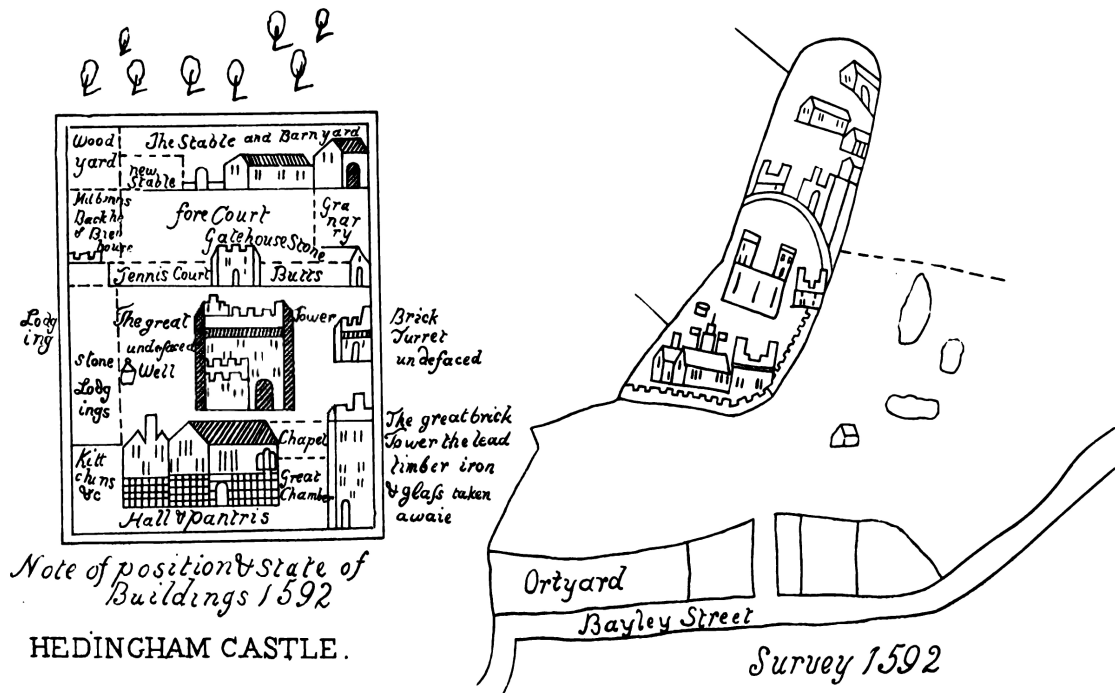 Wood
yard
The Stable and Barnyard
new
Stable
Milbonns
Backho
& Bre
house
fore Court
Gra
nar
ry
Gatehouse Stone
Tennis Court
Butts
Lodg
ing
The great
undefaced
Tower
Brick
Turret
undefaced
Well
stone
Lodg
ings
Chapel
The great brick
Tower the lead
timber iron
& glass taken
awaie
Kitt
chins
&c
Great
Chamber
Hall & pantris
Note of position & State of
Buildings 1592
HEDINGHAM CASTLE.
Ortyard
Bayley Street
Survey 1592